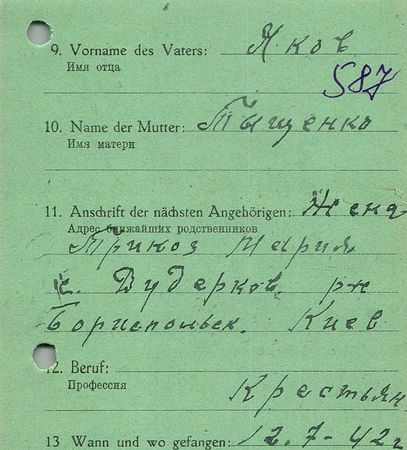 9. Vorname des Vaters: Яков
Имя отца
587
10. Name der Mutter: Тыщенко
Имя матери
11. Anschrift der nächsten Angehörigen: Жена
Адрес ближайших родственников
Трикоз Мария
с. Вудерков р-н
Бориспольск. Киев
12. Beruf:
Профессия
Крестьян
13 Wann und wo gefangen: 12.7-42 г